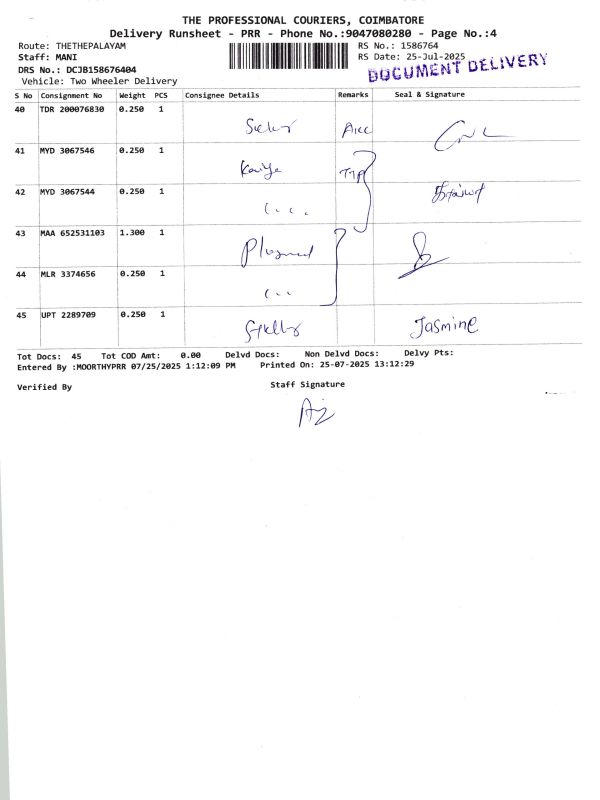 THE PROFESSIONAL COURIERS, COIMBATORE
Delivery Runsheet - PRR - Phone No.:9047080280 - Page No.:4
Route: THETHEPALAYAM
RS No.: 1586764
Staff: MANI
RS Date: 25-Jul-2025
DOCUMENT DELIVERY
DRS No.: DCJB158676404
Vehicle: Two Wheeler Delivery
S No Consignment No Weight PCS Consignee Details Remarks Seal & Signature
40 TDR 200076830 0.250 1
41 MYD 3067546 0.250 1
42 MYD 3067544 0.250 1
43 MAA 652531103 1.300 1
44 MLR 3374656 0.250 1
45 UPT 2289709 0.250 1 Jasmine
Tot Docs: 45 Tot COD Amt: 0.00 Delvd Docs: Non Delvd Docs: Delvy Pts:
Entered By :MOORTHYPRR 07/25/2025 1:12:09 PM Printed On: 25-07-2025 13:12:29
Verified By Staff Signature